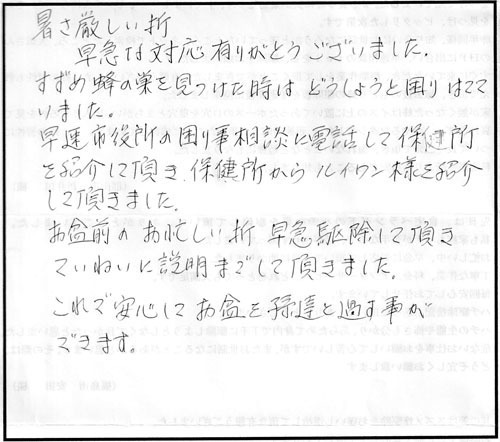 暑さ厳しい折
早急な対応有りがとうございました.
すずめ蜂の巣を見つけた時は どうしょうと困りはてて
いました。
早速市役所の困り事相談に電話して保健所
を紹介して頂き、保健所からルイワン様を紹介
して頂きました.
お盆前の お忙しい折 早急駆除して頂き
ていねいに説明までして頂きました.
これで安心してお盆を孫達と過す事が
できます。